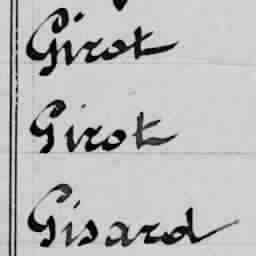 Girot
Girot
Gisard